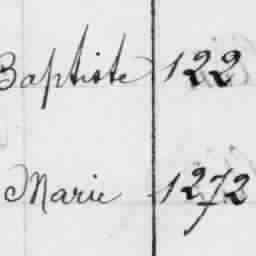 Baptiste 122
Marie 1272